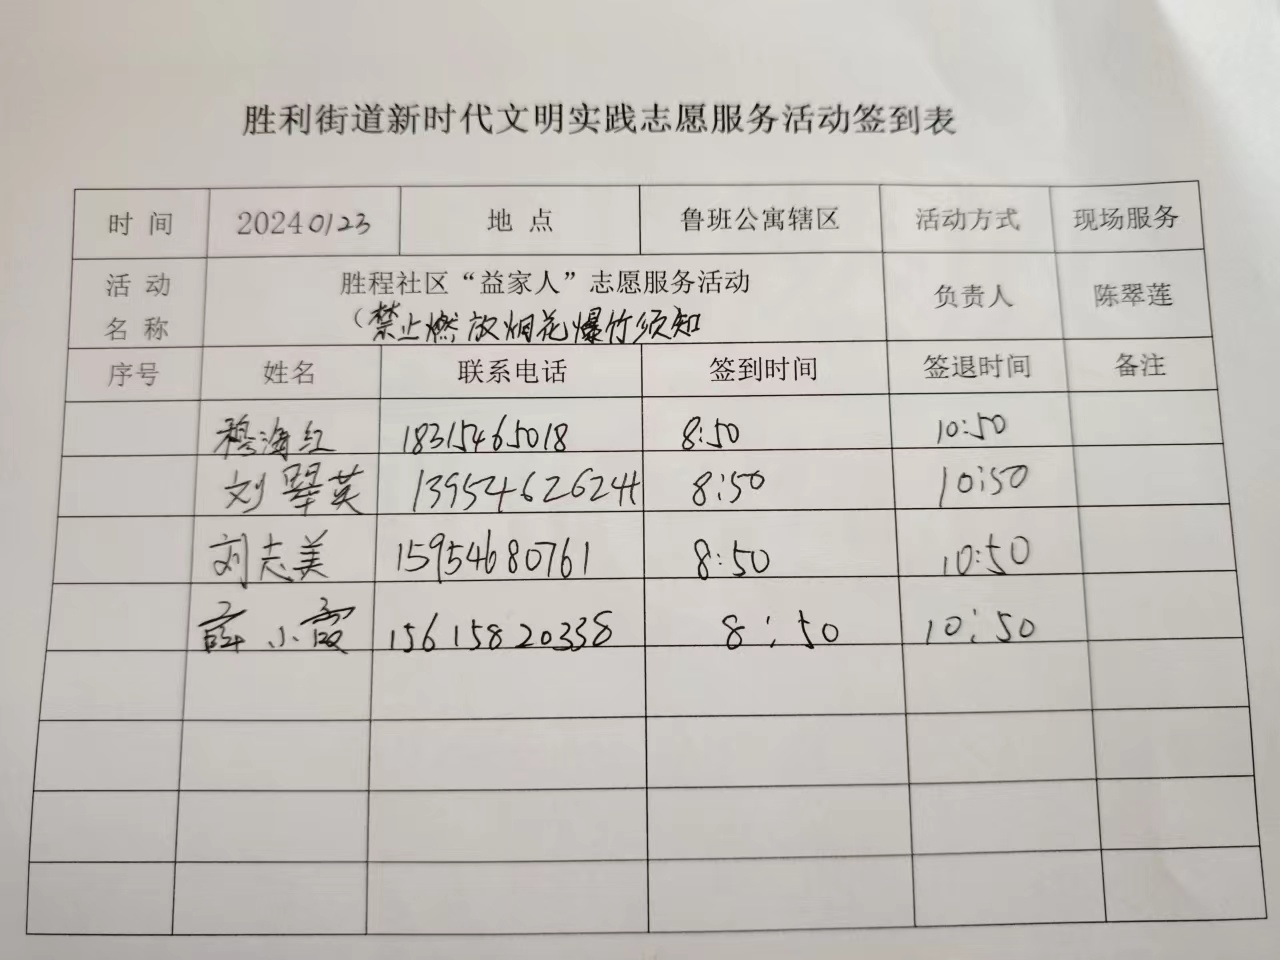 胜利街道新时代文明实践志愿服务活动签到表
时 间 20240123 地 点 鲁班公寓辖区 活动方式 现场服务
活 动 名 称 胜程社区“益家人”志愿服务活动 负责人 陈翠莲
（禁止燃放烟花爆竹须知
序号 姓名 联系电话 签到时间 签退时间 备注
穆海红 18315465018 8:50 10:50
刘翠英 13954626244 8:50 10:50
刘志美 15954680761 8:50 10:50
薛小霞 15615820338 8:50 10:50